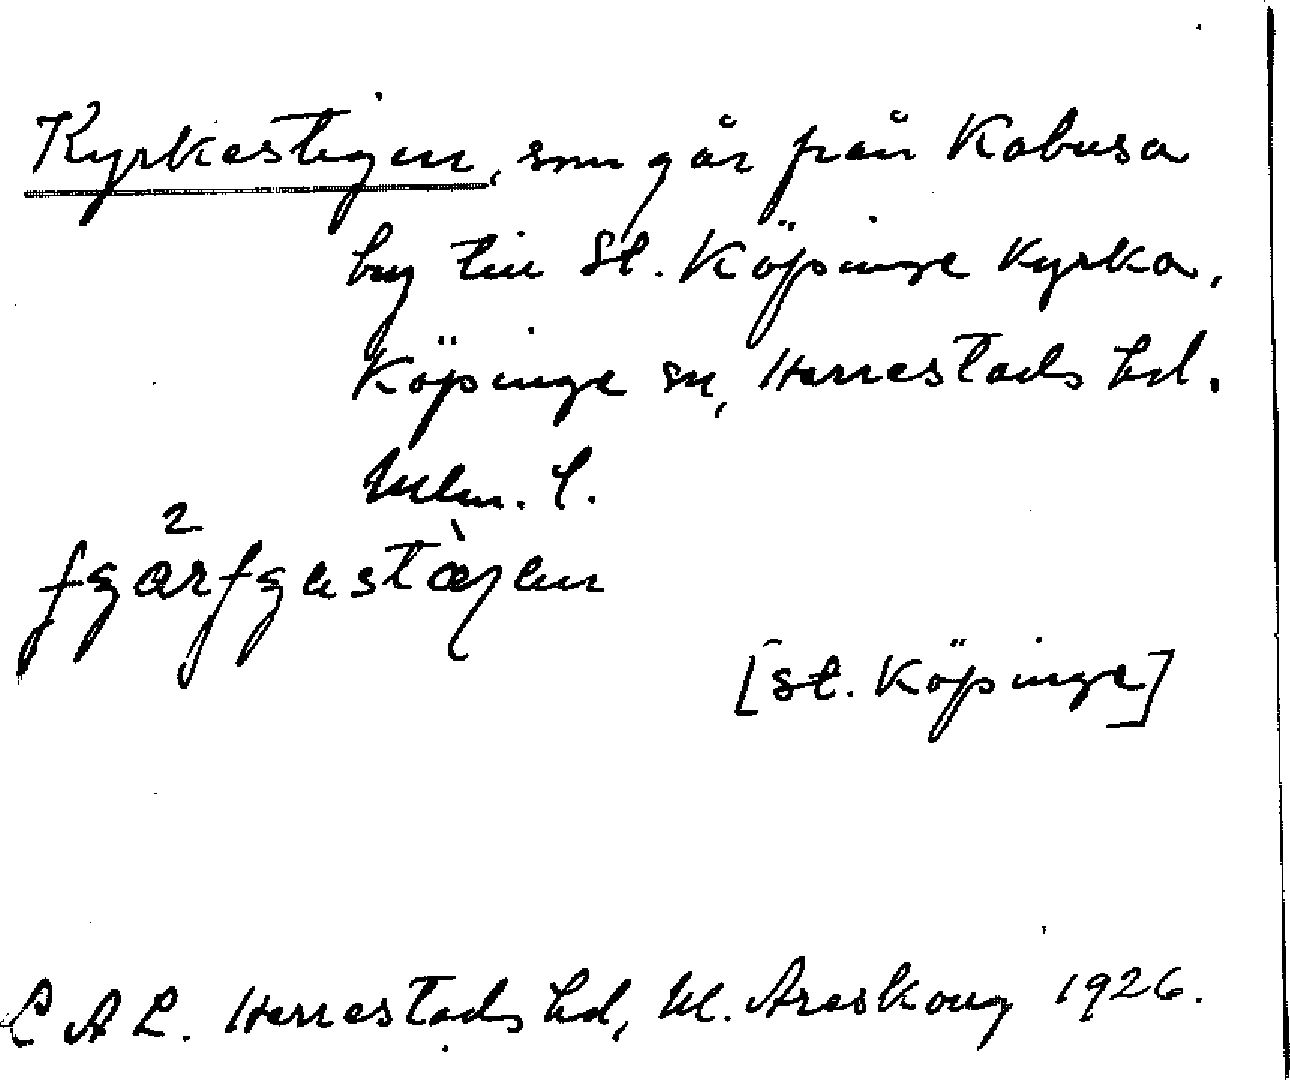 Kyrkestigen, som går från Kabusa
by till St. Köpinge kyrka,
Köpinge sn, Herrestads hd.
Mlm. l.
[St. Köpinge]
L A L. Herrestads hd, M. Areskoug 1926.